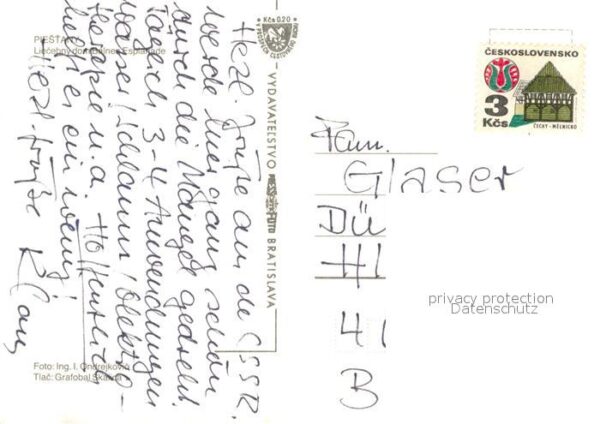 PIEŠŤANY
Liečebný dom Balnea Esplanade
Herzl. Grüße aus de CSSR.
werde hier ganz schön
durch die Mangel gedreht
Täglich 3-4 Anwendungen
Wasser/Schlamm/Elektro-
therapie u.a. Hoffentlich
hilft es ein wenig
Herzl. Grüße
Klaus
Foto: Ing. I. Ondrejkovič
Tlač: Grafobal Skalica
Kčs 0,20
VYDAVATEĽSTVO PRESSFOTO BRATISLAVA
ČESKOSLOVENSKO
3
Kčs
ČECHY-MĚLNICKO
Fam.
Glaser
Dü
Hl
41
B
privacy protection
Datenschutz